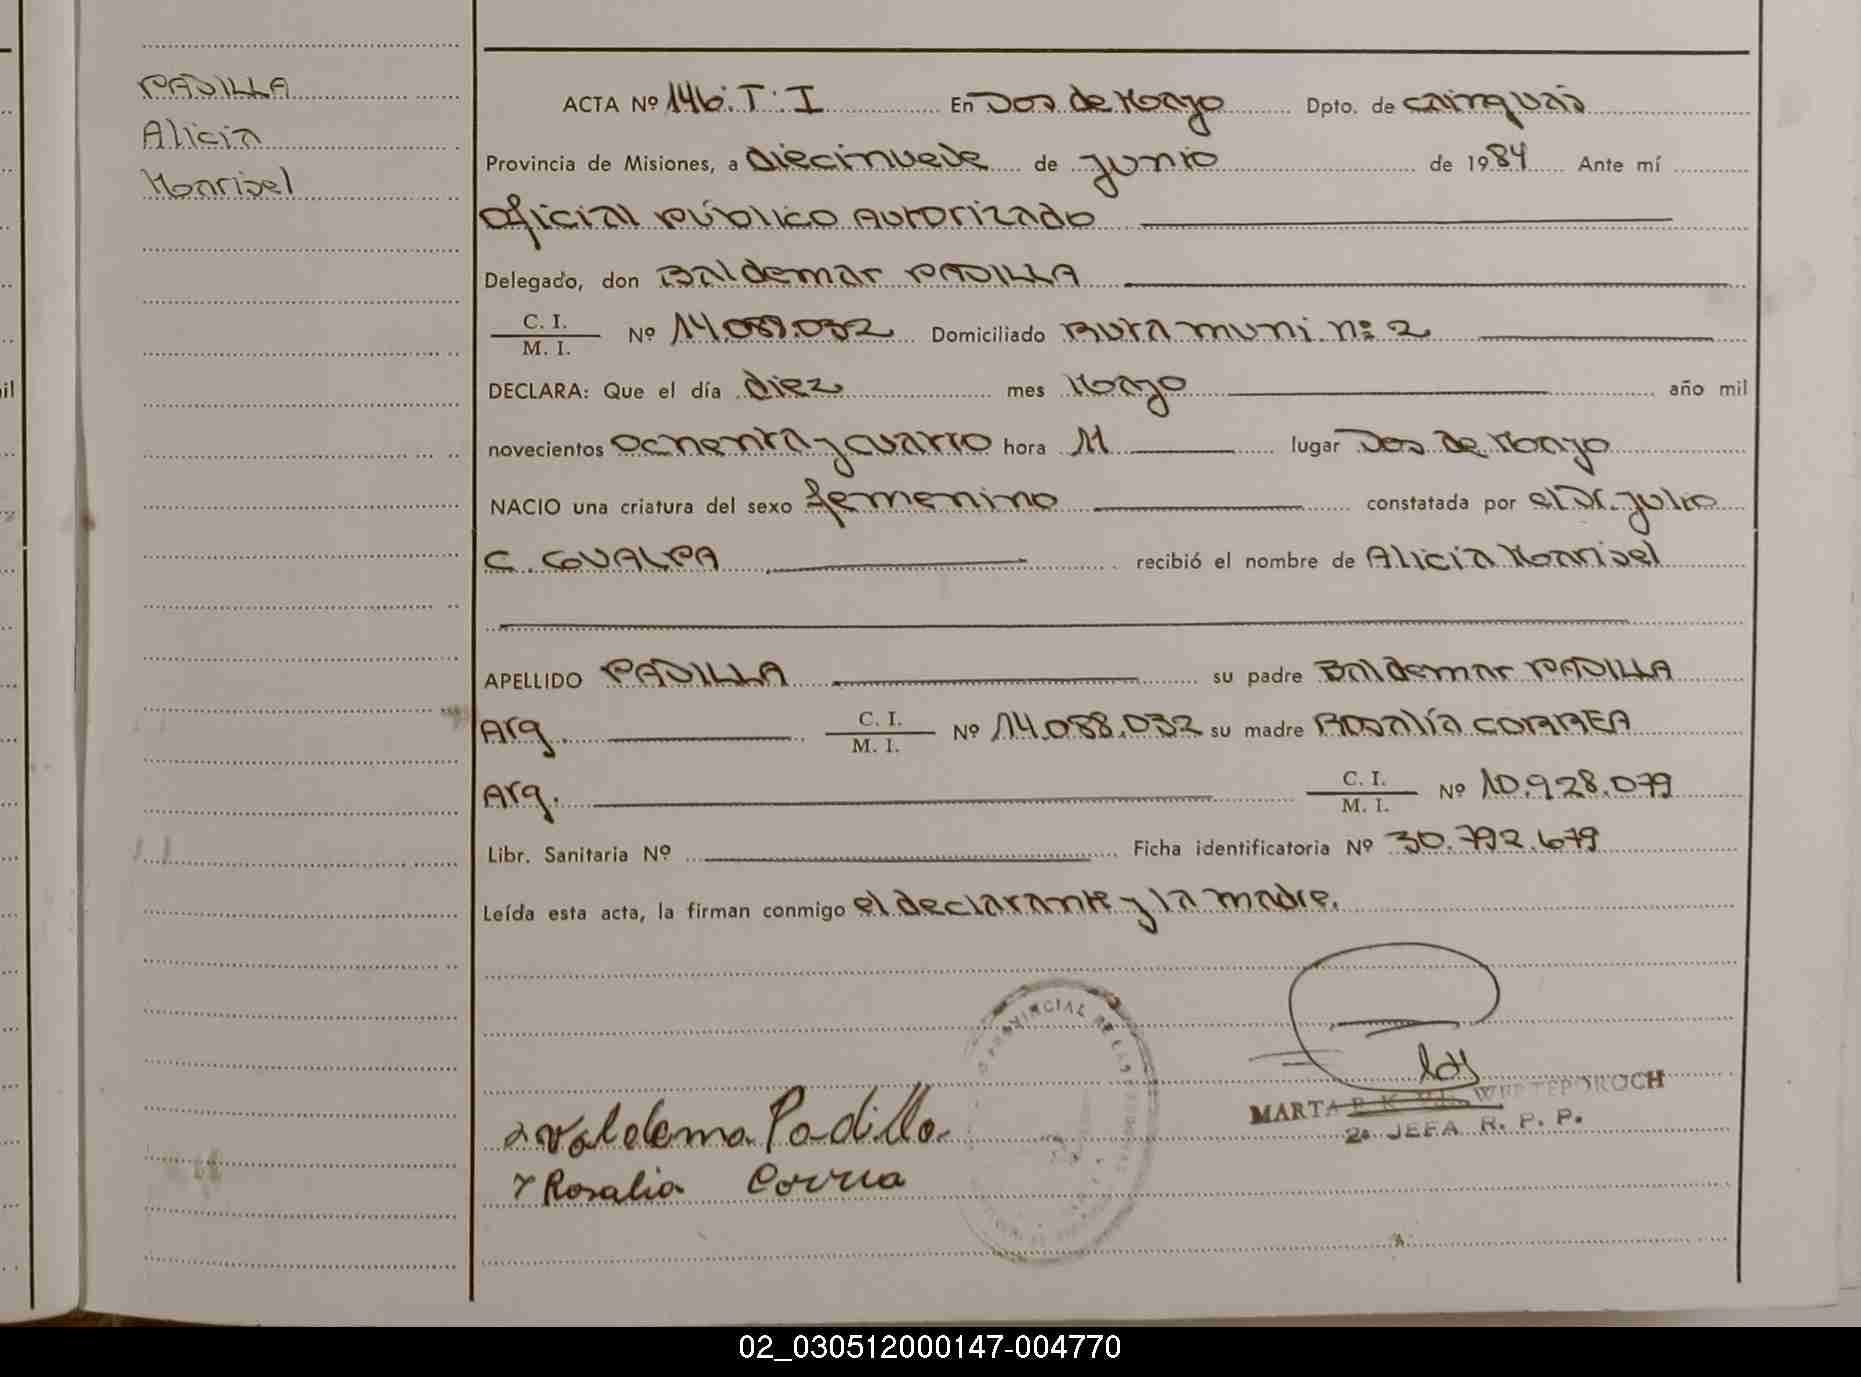 PADILLA
Alicia
Marisel
ACTA Nº 146. T. I En Dos de Mayo Dpto. de cainguás
Provincia de Misiones, a diecinueve de junio de 1984 Ante mí
Oficial Público Autorizado
Delegado, don Baldemar PADILLA
C. I.
M. I.
Nº 14.089.032 Domiciliado Ruta muni. nº 2
DECLARA: Que el día diez mes Mayo año mil
novecientos ochenta y cuatro hora 11 lugar Dos de Mayo
NACIO una criatura del sexo femenino constatada por el Dr. julio
C. GUALPA recibió el nombre de Alicia Marisel
APELLIDO PADILLA su padre Baldemar PADILLA
Arg. C. I.
M. I.
Nº 14.088.032 su madre Rosalía CORREA
Arg. C. I.
M. I.
Nº 10.928.079
Libr. Sanitaria Nº Ficha identificatoria Nº 30.792.679
Leída esta acta, la firman conmigo el declarante y la madre.
PROVINCIAL DE LAS
MARTA
2a JEFA R. P. P.
Valdema Padilla
Rosalia Correa
il
02_030512000147-004770